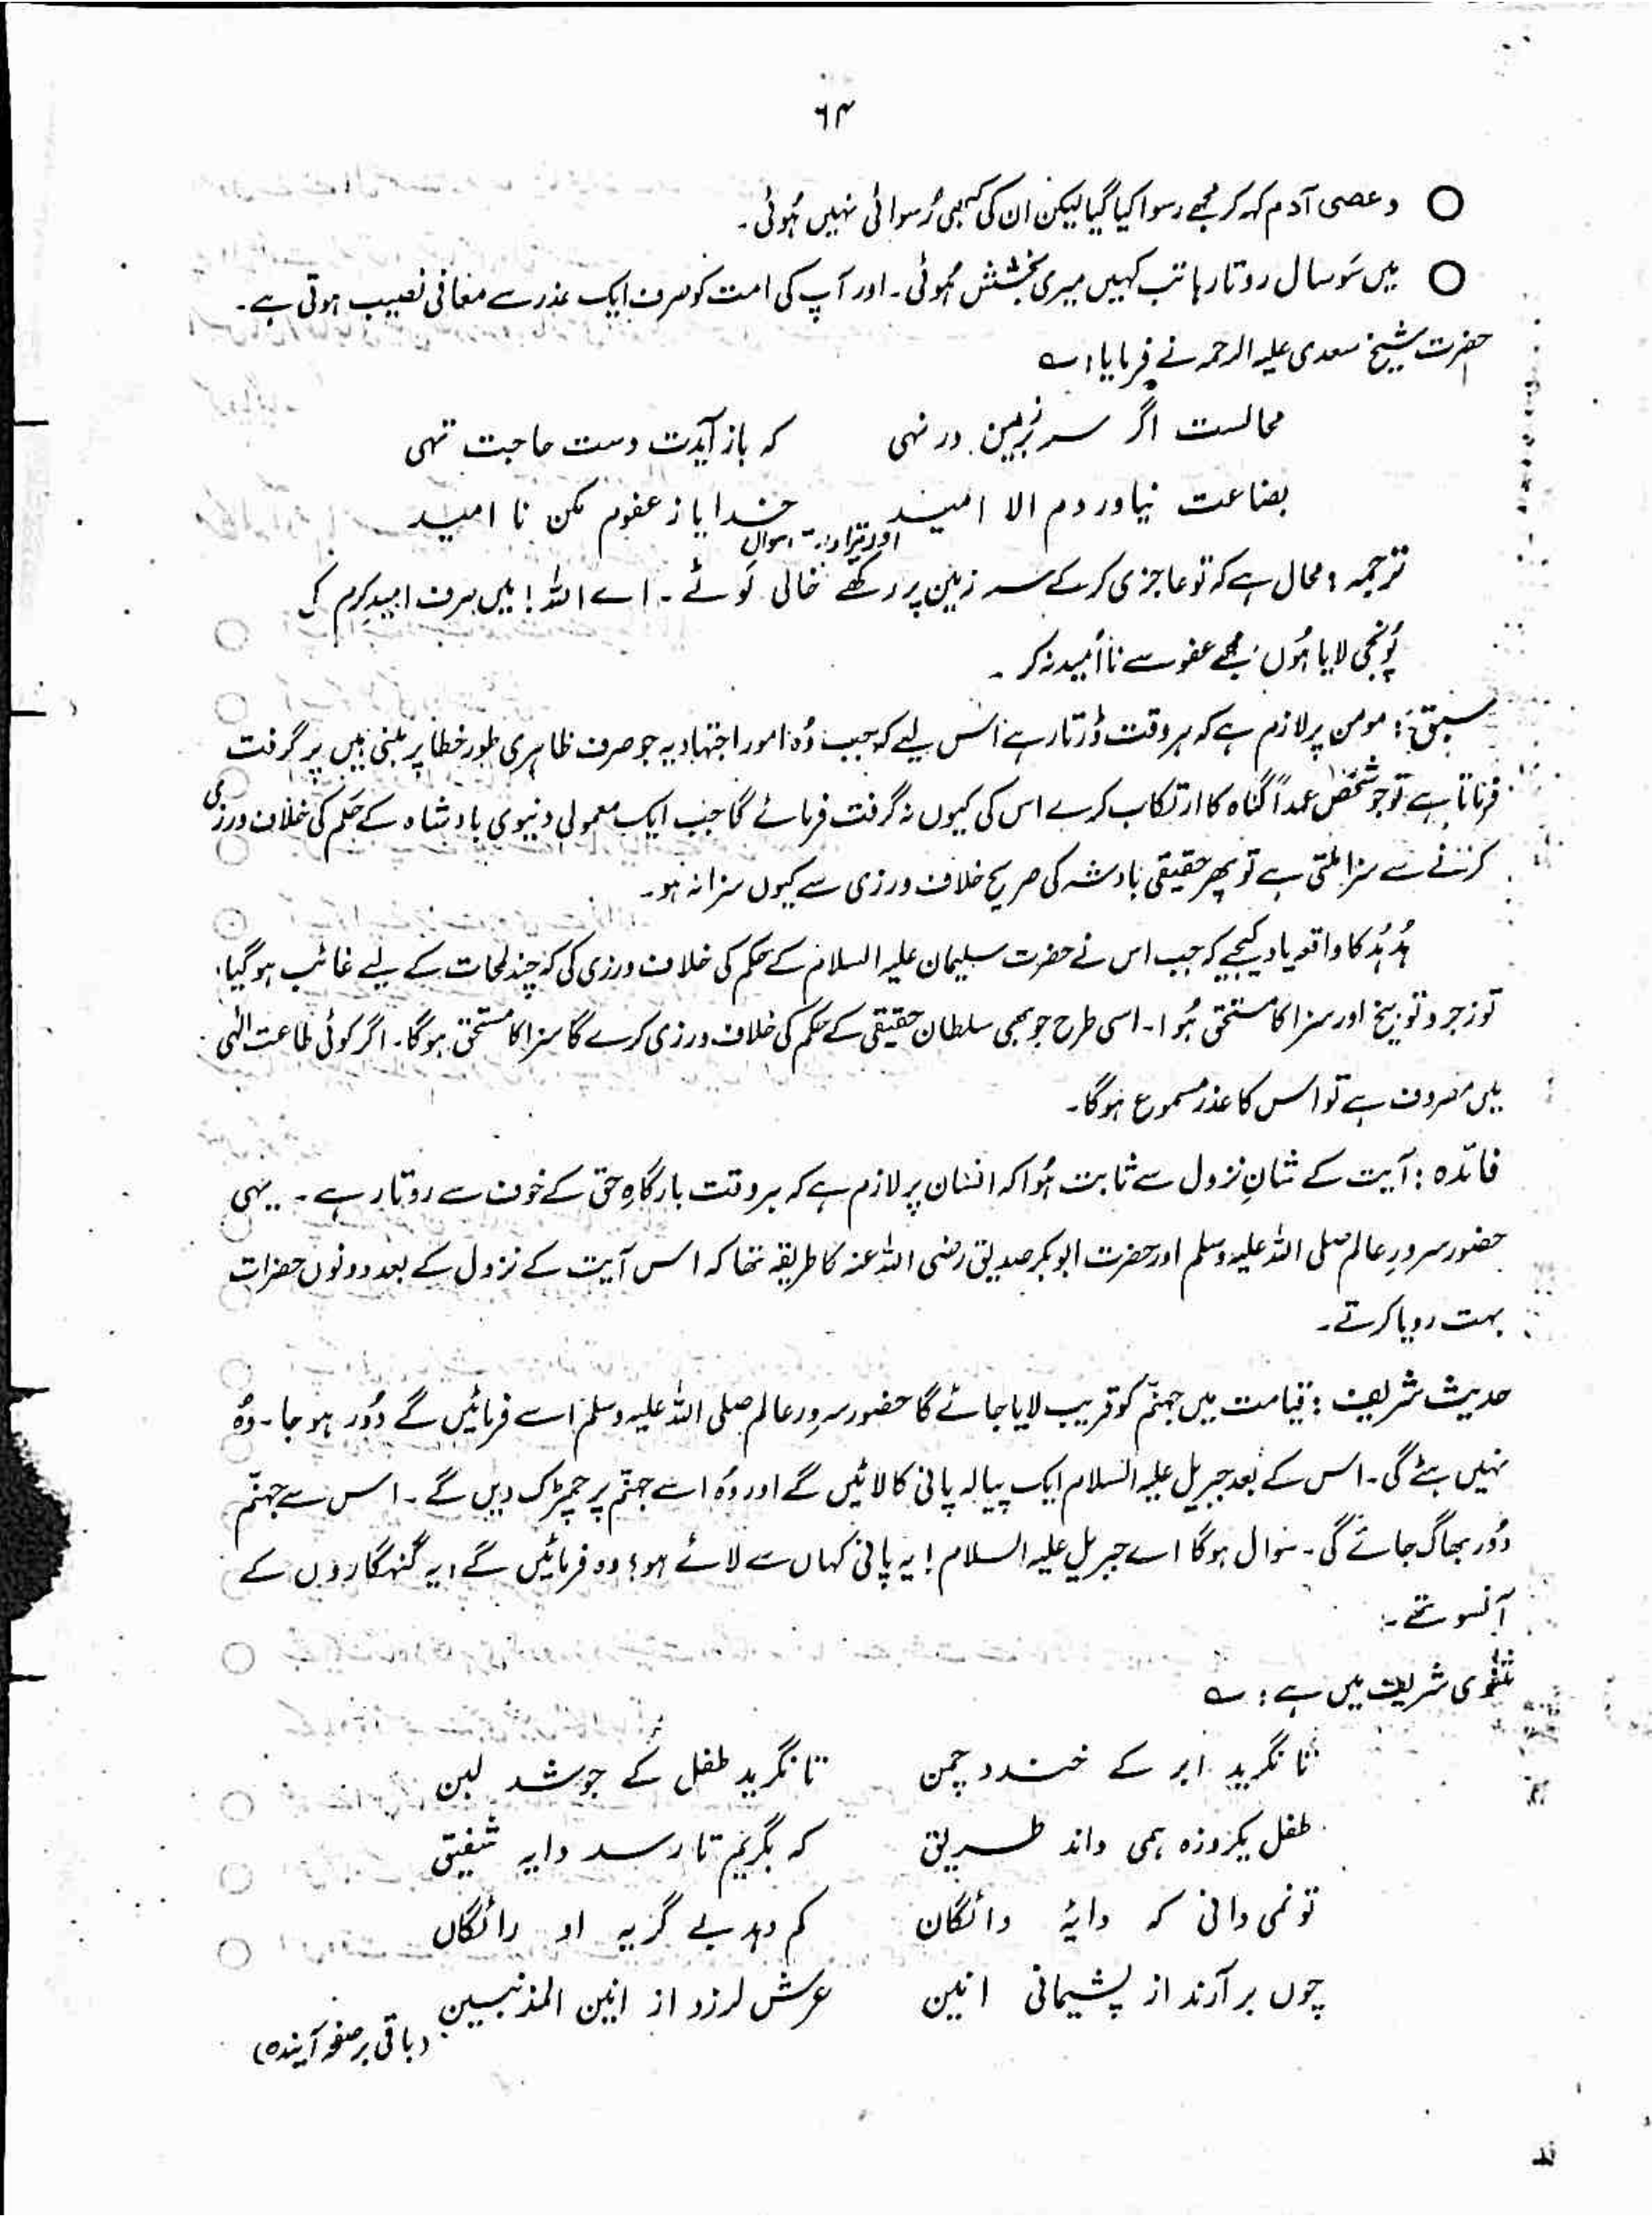 ٦٤
○ وعصی آدم کہہ کر مجھے رسوا کیا گیا لیکن ان کی کبھی رُسوائی نہیں ہُوئی۔
○ میں سَو سال روتا رہا تب کہیں میری بخشش ہُوئی۔ اور آپ کی امت کو صرف ایک عذر سے معافی نصیب ہوتی ہے۔
حضرت شیخ سعدی علیہ الرحمہ نے فرمایا: ؎
محالست اگر سر زمین در نہی کہ باز آیدت دست حاجت تہی
بضاعت نیاوردم الا امید خدایا ز عفوم مکن نا امید
ترجمہ: محال ہے کہ تو عاجزی کرکے سر زمین پر رکھے اور تیرا دست سوال خالی لَوٹے۔ اے اللہ! میں صرف امیدِ کرم کی
پُونجی لایا ہُوں مجھے عفو سے نا اُمید نہ کر۔
سبق: مومن پر لازم ہے کہ ہر وقت ڈرتا رہے اس لیے کہ جب وُہ امور اجتہادیہ جو صرف ظاہری طور خطا پر مبنی ہیں پر گرفت
فرماتا ہے تو جو شخص عمداً گناہ کا ارتکاب کرے اس کی کیوں نہ گرفت فرمائے گا جب ایک معمولی دنیوی بادشاہ کے حکم کی خلاف ورزی
کرنے سے سزا ملتی ہے تو پھر حقیقی بادشہ کی صریح خلاف ورزی سے کیوں سزا نہ ہو۔
ہُد ہُد کا واقعہ یاد کیجیے کہ جب اس نے حضرت سلیمان علیہ السلام کے حکم کی خلاف ورزی کی کہ چند لمحات کے لیے غائب ہو گیا،
تو زجر و توبیخ اور سزا کا مستحق ہُوا۔ اسی طرح جو بھی سلطان حقیقی کے حکم کی خلاف ورزی کرے گا سزا کا مستحق ہوگا۔ اگر کوئی طاعت الٰہی
میں مصروف ہے تو اس کا عذر مسموع ہوگا۔
فائدہ: آیت کے شانِ نزول سے ثابت ہُوا کہ انسان پر لازم ہے کہ ہر وقت بارگاہِ حق کے خوف سے روتا رہے۔ یہی
حضور سرورِ عالم صلی اللہ علیہ وسلم اور حضرت ابوبکر صدیق رضی اللہ عنہ کا طریقہ تھا کہ اس آیت کے نزول کے بعد دونوں حضرات
بہت رویا کرتے۔
حدیث شریف: قیامت میں جہنّم کو قریب لایا جائے گا حضور سرورِ عالم صلی اللہ علیہ وسلم اسے فرمائیں گے دُور ہو جا۔ وُہ
نہیں ہٹے گی۔ اس کے بعد جبریل علیہ السلام ایک پیالہ پانی کا لائیں گے اور وُہ اسے جہنّم پر چھڑک دیں گے۔ اس سے جہنّم
دُور بھاگ جائے گی۔ سوال ہوگا اے جبریل علیہ السلام! یہ پانی کہاں سے لائے ہو؟ وہ فرمائیں گے: یہ گنہگاروں کے
آنسو تھے۔
مثنوی شریف میں ہے: ؎
تا نگرید ابر کے خندد چمن تا نگرید طفل کے جوشد لبن
طفل یکروزہ ہمی داند طریق کہ بگریم تا رسد دایہ شفیق
تو نمی دانی کہ دایۂ دائگان کم دہد بے گریہ او رائگاں
چوں بر آرند از پشیمانی انین عرش لرزد از انین المذنبین
(باقی بر صفحہ آیندہ)